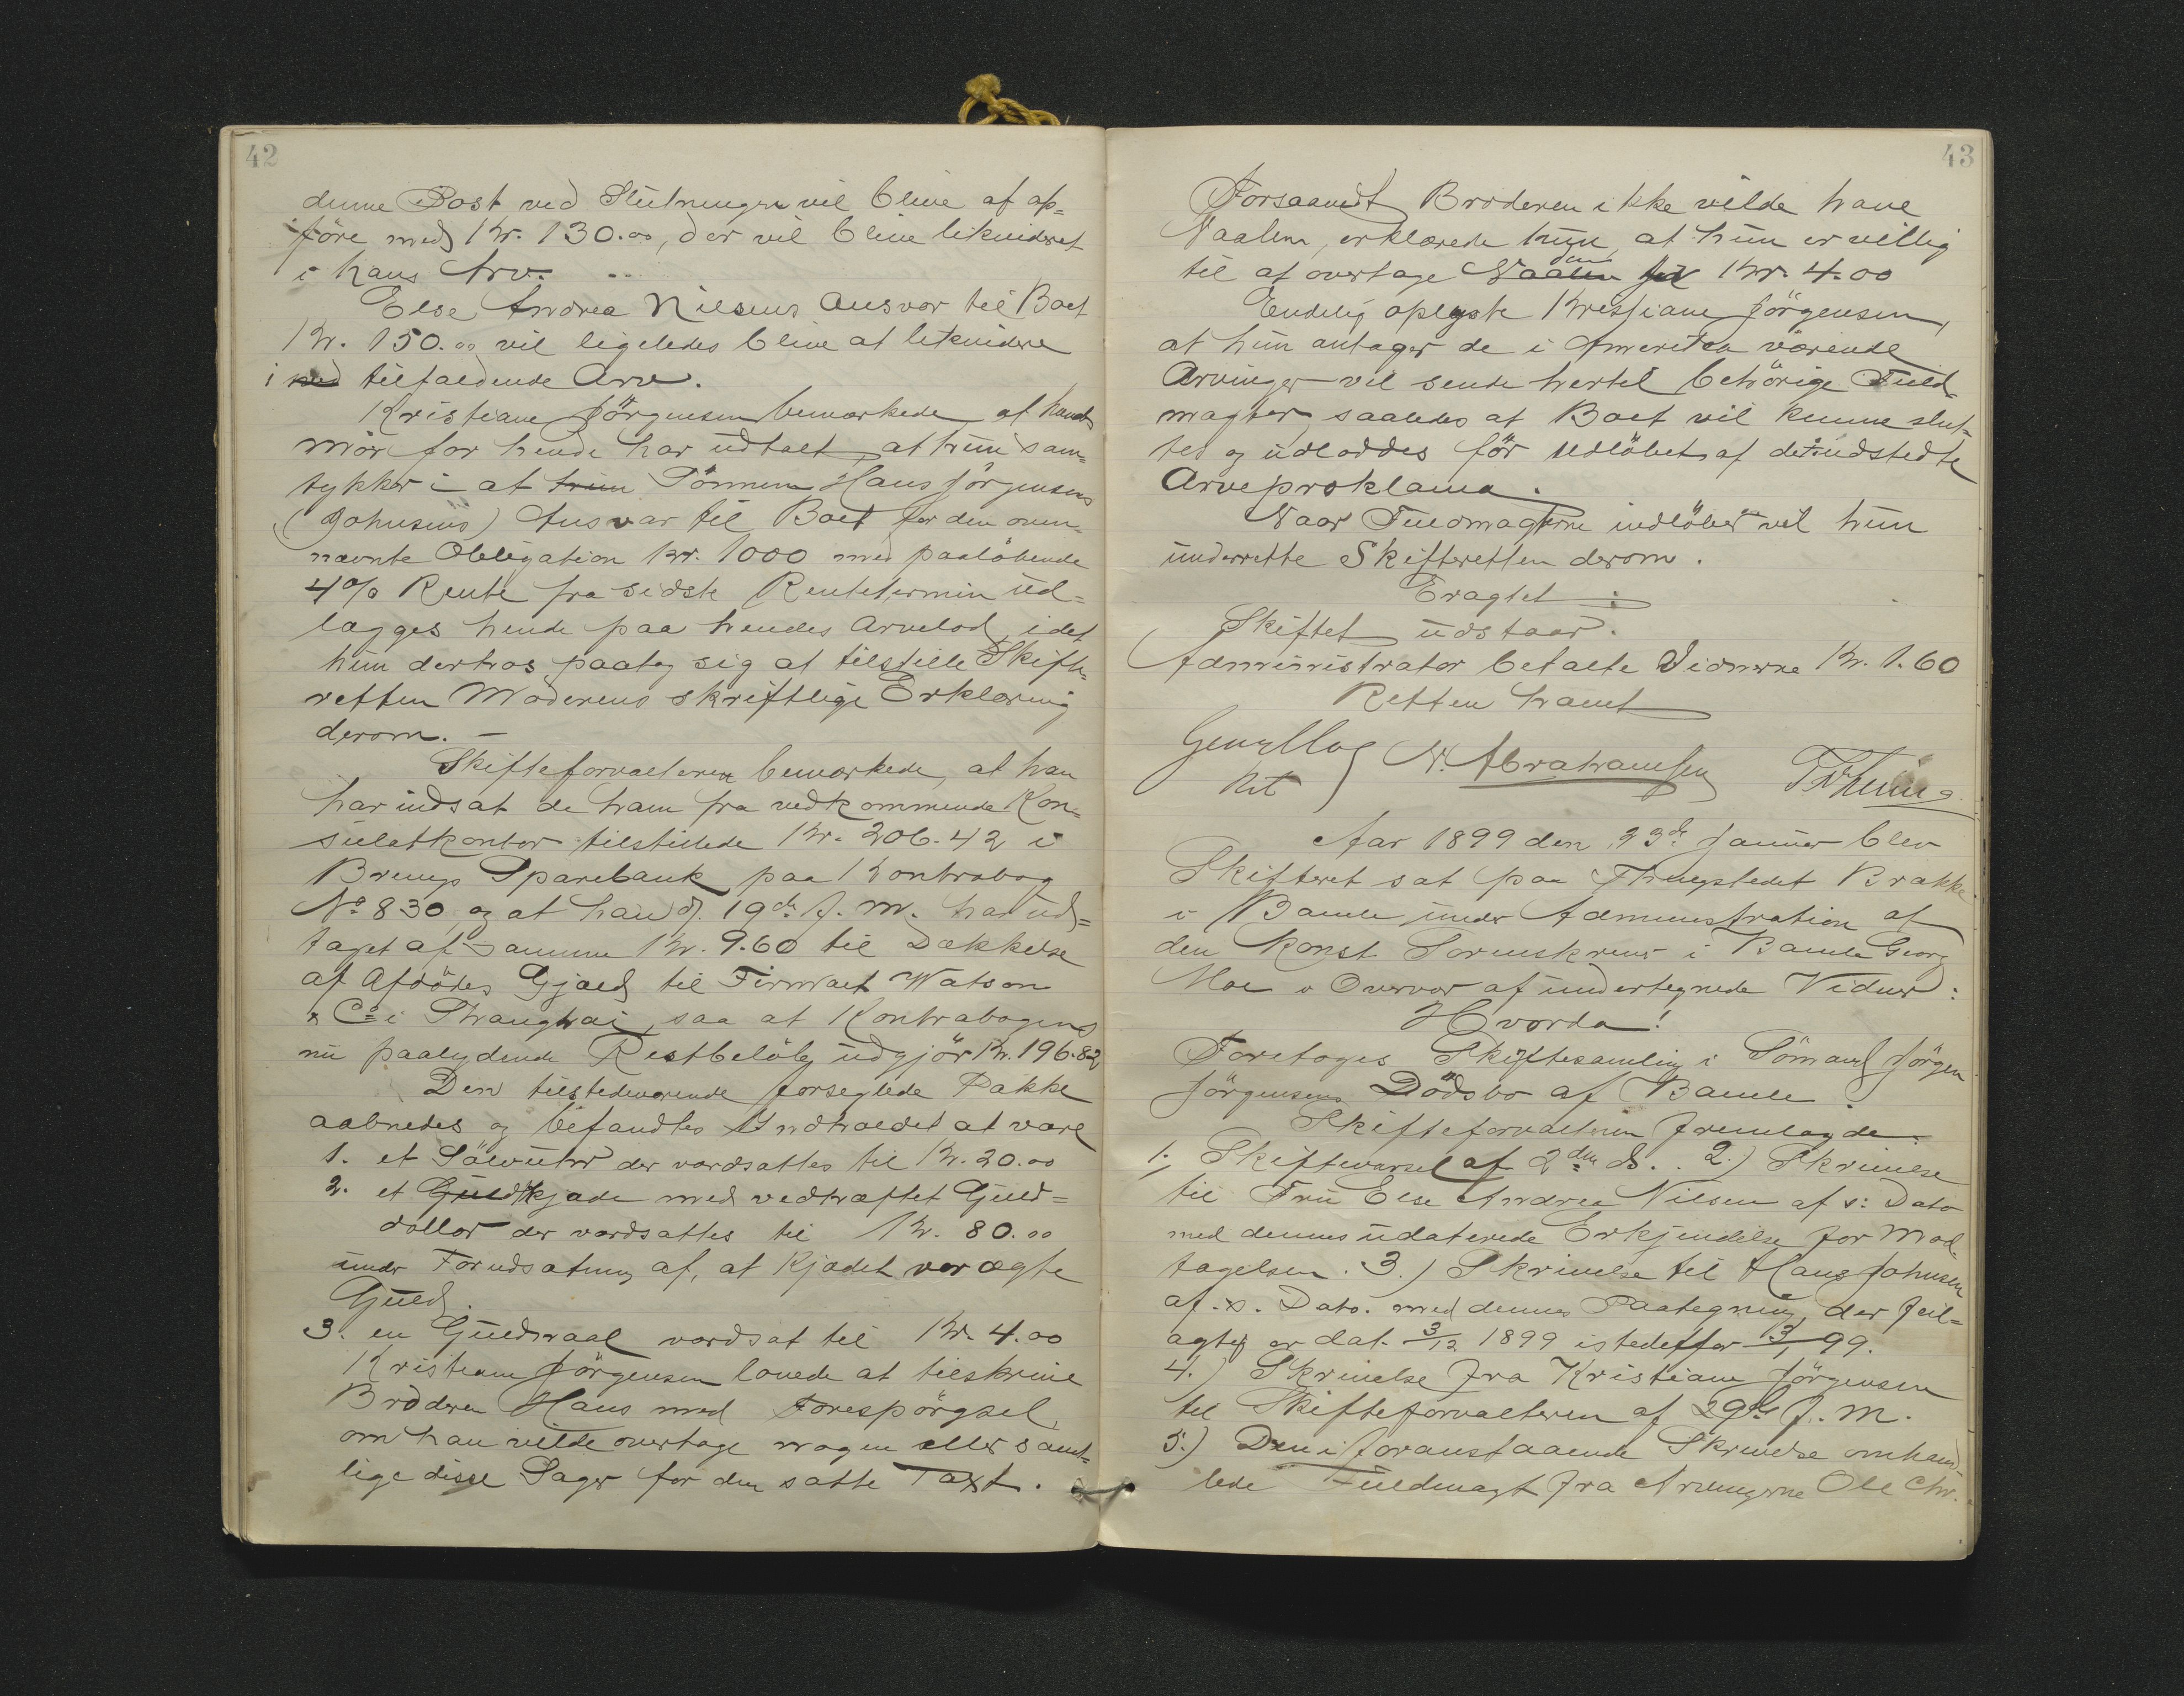 42
denne Post ved Slutningen vil blive at op-
føre med Kr. 130.00, der vil blive likvideret
i hans Arv.
Else Andrea Nilsens Ansvar til Boet
Kr. 150.00 vil ligeledes blive at likvidere
i tilfaldende Arv.
Kristiane Jörgensen bemærkede at hendes
Mor for hende har udtalt, at hun sam-
tykker i at Sönnen Hans Jörgensens
(Johnsens) Ansvar til Boet for den oven-
nævnte Obligation Kr. 1000 med paalöbende
4% Rente fra sidste Rentetermin ud-
lægges hende paa hendes Arvelod, idet
hun derhos paatog sig at tilstille Skifte-
retten Moderens skriftlige Erklæring
derom. —
Skifteforvalteren bemærkede, at han
har indsat de ham fra vedkommende Kon-
sulatkontor tilstillede Kr. 206.42 i
Brevigs Sparebank paa Kontrabog
No 830, og at han d. 19de f. M. har ud-
taget af samme Kr. 9.60 til Dækkelse
af Afdödes Gjæld til Firmaet Watson
& Co i Shanghai, saa at Kontrabogens
nu paalydende Restbelöb udgjör Kr. 196.82
Den tilstedeværende forseglede Pakke
aabnedes og befandtes Indholdet at være
1. et Sölvuhr der værdsattes til Kr. 20.00
2. et Guldkjæde med vedhæftet Guld-
dollar der værdsattes til Kr. 80.00
under Forudsætning af, at Kjædet var ægte
Guld.
3. en Guldnaal værdsat til Kr. 4.00
Kristiane Jörgensen lovede at tilskrive
Broderen Hans med Forespörgsel,
om han vilde overtage nogen eller samt-
lige disse Sager for den satte Taxt.
43
Forsaavidt Broderen ikke vilde have
Naalen, erklærede hun, at hun er villig
til at overtage Naalen den for Kr. 4.00
Endelig oplyste Kristiane Jörgensen,
at hun antager de i Amerika værende
Arvinger vil sende hertil behörige Fuld-
magter, saaledes at Boet vil kunne slut-
tes og udloddes för Udlöbet af det udstedte
Arveproklama.
Naar Fuldmagterne indlöber vil hun
underrette Skifteretten derom.
Eragtet:
Skiftet udstaar.
Administrator betalte Vidnerne Kr. 1.60
Retten hævet
Georg Moe N. Abrahamsen
Kst
Aar 1899 den 23de Januar blev
Skifteret sat paa Thingstedet Rakke
i Bamle under Administration af
den Konst. Sorenskriver i Bamle Georg
Moe i Overvær af undertegnede Vidner:
Hvorda!
Foretoges Skiftesamling i Sömand Jörgen
Jörgensens Dödsbo af Bamle.
Skifteforvalteren fremlagde:
1. Skiftevarsel af 2den ds. 2.) Skrivelse
til Fru Else Andrea Nilsen af s: Dato
med dennes udaterede Erkjendelse for Mod-
tagelsen. 3.) Skrivelse til Hans Johnsen
af s. Dato. med dennes Paategning, der feil-
agtig er dat. 3/12 1899 istedetfor 3/1 99.
4.) Skrivelse fra Kristiane Jörgensen
til Skifteforvalteren af 29de f. M.
5.) Den i foranstaaende Skrivelse omhand-
lede Fuldmagt fra Arvingerne Ole Chr.